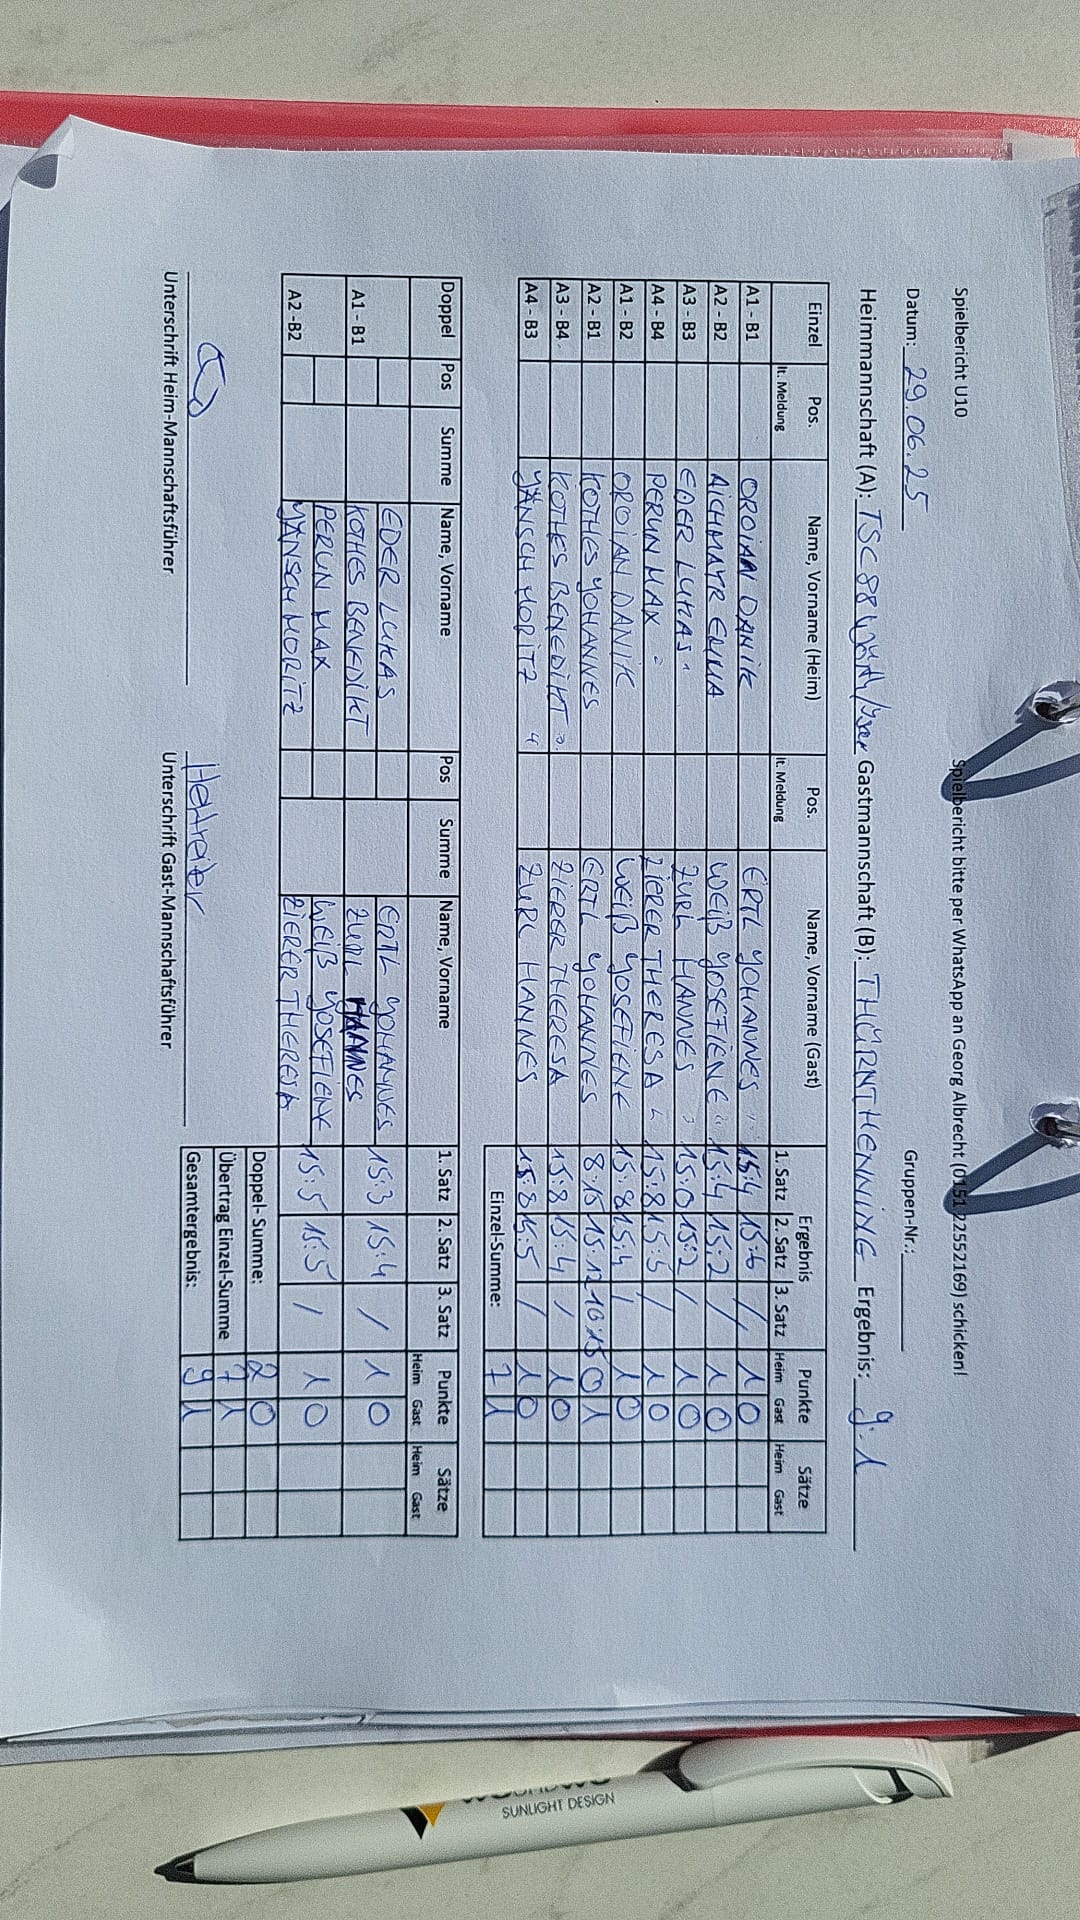 Spielbericht U10 Spielbericht bitte per WhatsApp an Georg Albrecht (0151 22552169) schicken!
Datum: 29.06.25 Gruppen-Nr.:
Heimmannschaft (A): TSC 88 Wörth/Isar Gastmannschaft (B): THÜRNTHENNING Ergebnis: 9:1
Einzel Pos. Name, Vorname (Heim) Pos. Name, Vorname (Gast) Ergebnis Punkte Sätze
lt. Meldung lt. Meldung 1. Satz 2. Satz 3. Satz Heim Gast Heim Gast
A1 - B1 OROIAN DANIK ERTL YOHANNES 15:4 15:6 / 1 0
A2 - B2 AICHMAYR EMMA WEIß YOSEFIENE 15:4 15:2 / 1 0
A3 - B3 EDER LUKAS ZURL HANNES 15:0 15:2 / 1 0
A4 - B4 PERUN MAX ZIERER THERESA 15:8 15:5 / 1 0
A1 - B2 OROIAN DANIK WEIß YOSEFIENE 15:8 15:4 / 1 0
A2 - B1 KOTHES YOHANNES ERTL YOHANNES 8:15 15:12 10:15 0 1
A3 - B4 KOTHES BENEDIKT ZIERER THERESA 15:8 15:4 / 1 0
A4 - B3 YÄNSCH MORITZ ZURL HANNES 15:8 15:5 / 1 0
Einzel-Summe: 7 1
Doppel Pos Summe Name, Vorname Pos Summe Name, Vorname 1. Satz 2. Satz 3. Satz Punkte Sätze
Heim Gast Heim Gast
EDER LUKAS ERTL YOHANNES
A1 - B1 KOTHES BENEDIKT ZURL HANNES 15:3 15:4 / 1 0
PERUN MAX WEIß YOSEFIENE
A2 -B2 YÄNSCH MORITZ ZIERER THERESA 15:5 15:5 / 1 0
Doppel- Summe: 2 0
Übertrag Einzel-Summe 7 1
Gesamtergebnis: 9 1
Unterschrift Heim-Mannschaftsführer Unterschrift Gast-Mannschaftsführer
SUNLIGHT DESIGN